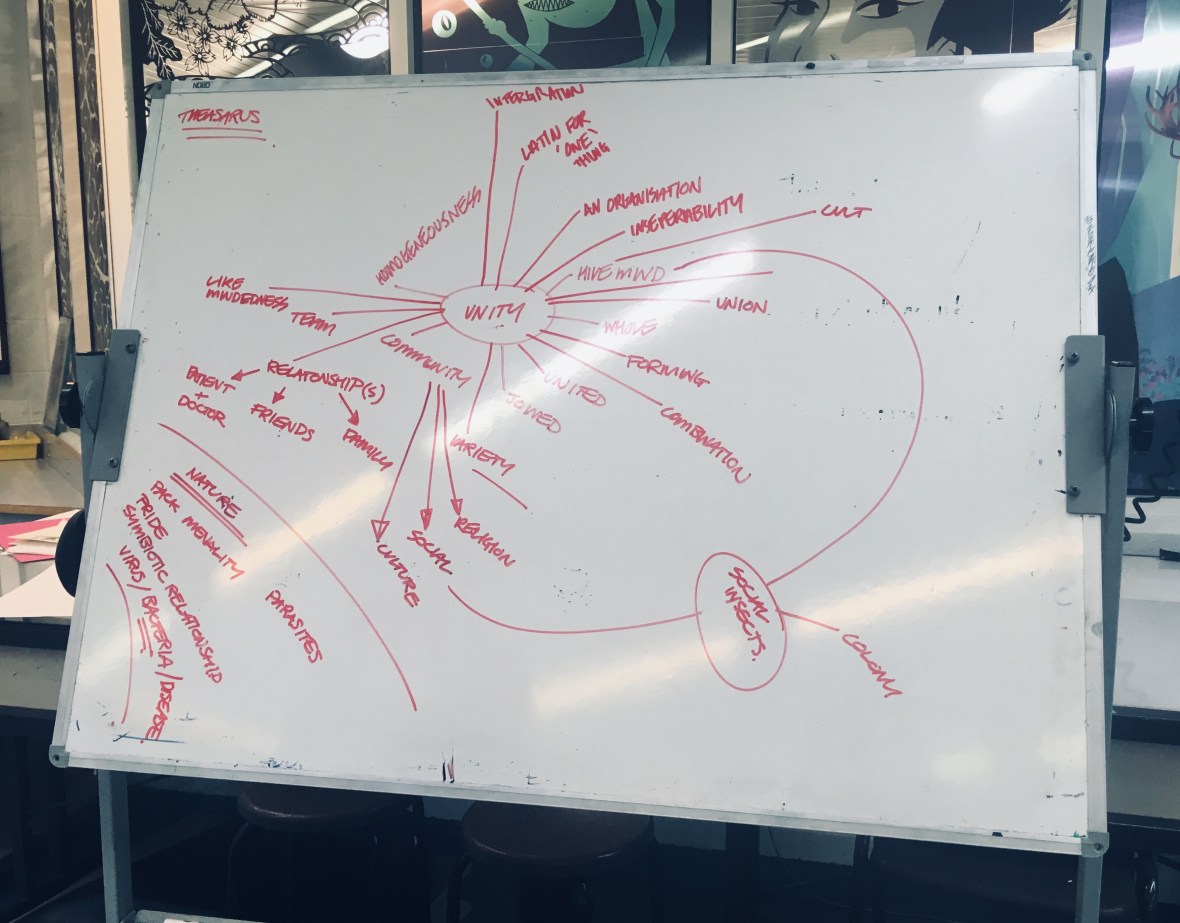 NOBO
THEASARUS
INTERGRATION
LATIN FOR
'ONE'
THING
HOMOGENEOUSNESS
AN ORGANISATION
INSEPERABILITY
CULT
HIVE MIND
LIKE
MINDEDNESS
TEAM
UNITY
UNION
WHOLE
FORMING
COMBINATION
UNITED
JOINED
VARIETY
COMMUNITY
RELATIONSHIP(S)
PATIENT
+
DOCTOR
FRIENDS
FAMILY
CULTURE
SOCIAL
RELIGION
NATURE
PACK MENALITY
PRIDE
SYMBIOTIC RELATIONSHIP
VIRUS/BACTERIA/DISEASE.
PARASITES
SOCIAL
INSECTS.
COLONY